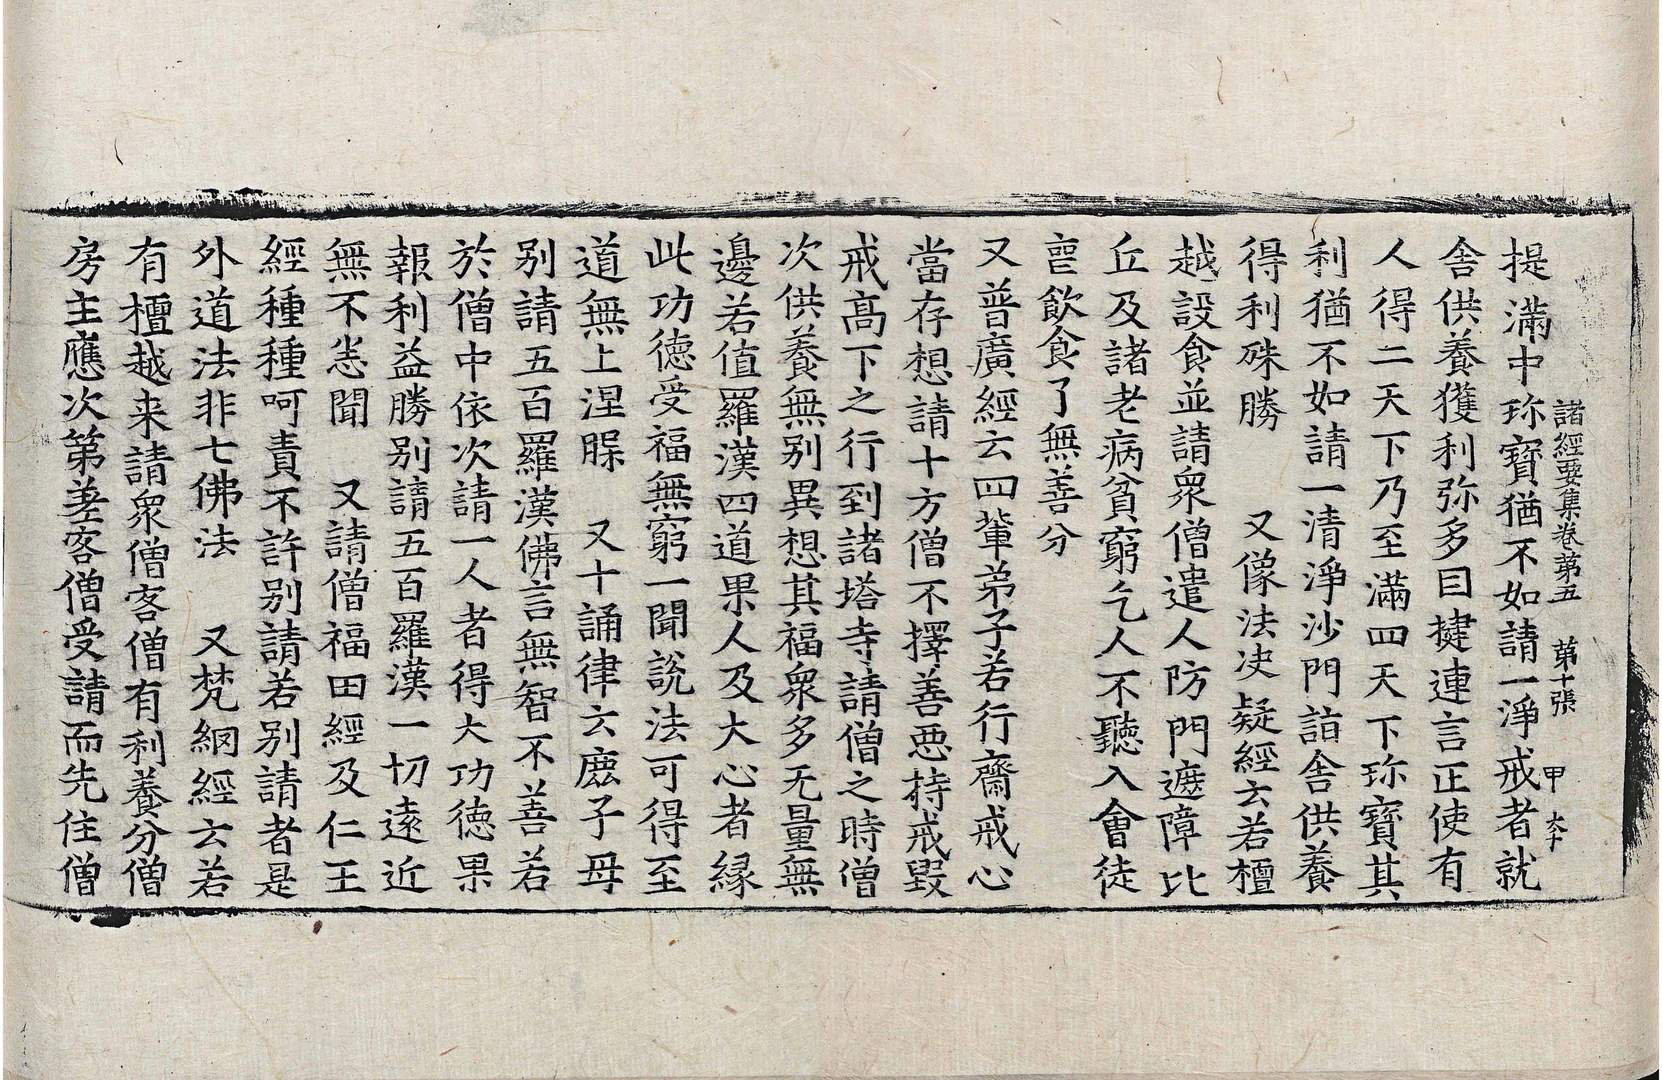 諸經要集卷第五　第十張　甲　大个
提滿中珎寶猶不如請一淨戒者就
舍供養獲利弥多目揵連言正使有
人得二天下乃至滿四天下珎寶其
利猶不如請一清淨沙門詣舍供養
得利殊勝　又像法决疑經云若檀
越設食並請衆僧遣人防門遮障比
丘及諸老病貧窮乞人不聽入會徒
䘮飲食了無善分
又普廣經云四輩弟子若行齋戒心
當存想請十方僧不擇善惡持戒毀
戒高下之行到諸塔寺請僧之時僧
次供養無別異想其福衆多无量無
邊若值羅漢四道果人及大心者緣
此功德受福無窮一聞說法可得至
道無上涅槃　又十誦律云鹿子母
別請五百羅漢佛言無智不善若
於僧中依次請一人者得大功德果
報利益勝別請五百羅漢一切遠近
無不恙聞　又請僧福田經及仁王
經種種呵責不許別請若別請者是
外道法非七佛法　又梵網經云若
有檀越来請衆僧客僧有利養分僧
房主應次第差客僧受請而先住僧